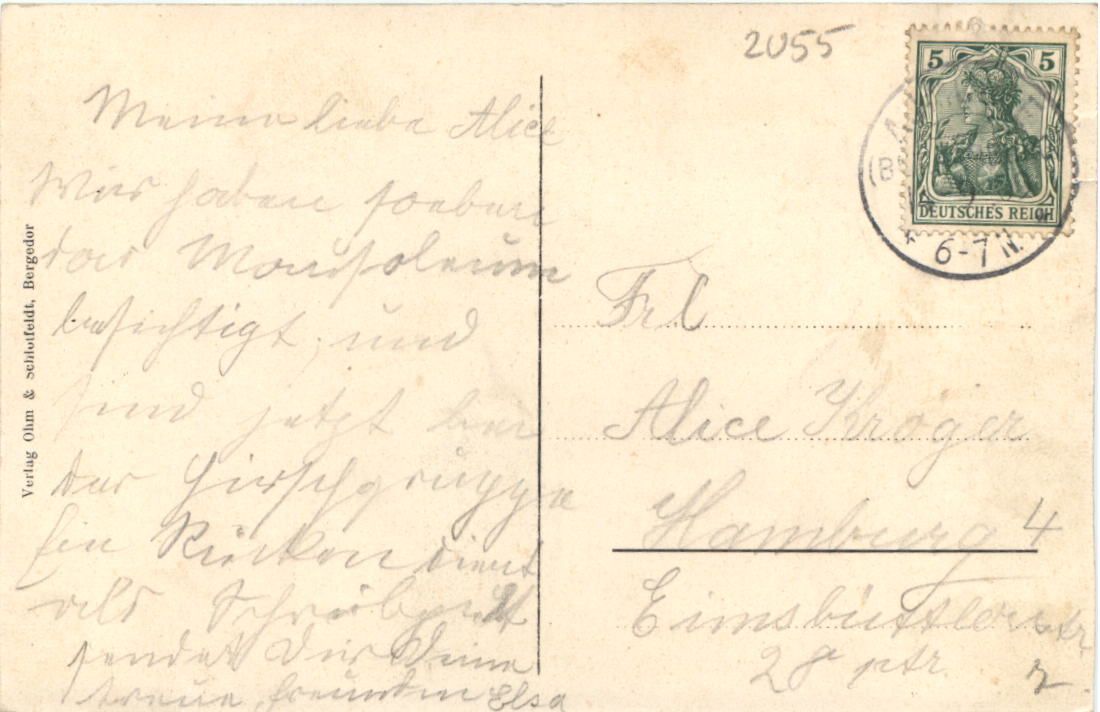 2055
5 5
DEUTSCHES REICH
6-7 N.
Meine liebe Alice
Wir haben soeben
das Mausoleum
besichtigt, und
sind jetzt bei
der Hirschgruppe
Rücken dient
als Schreibpult
sendet Dir Deine
treue Freundin Elsa
Verlag Ohm & Schlotfeldt, Bergedor
Frl
Alice Kröger
Hamburg 4
Eimsbüttlerstr.
28 ptr. r